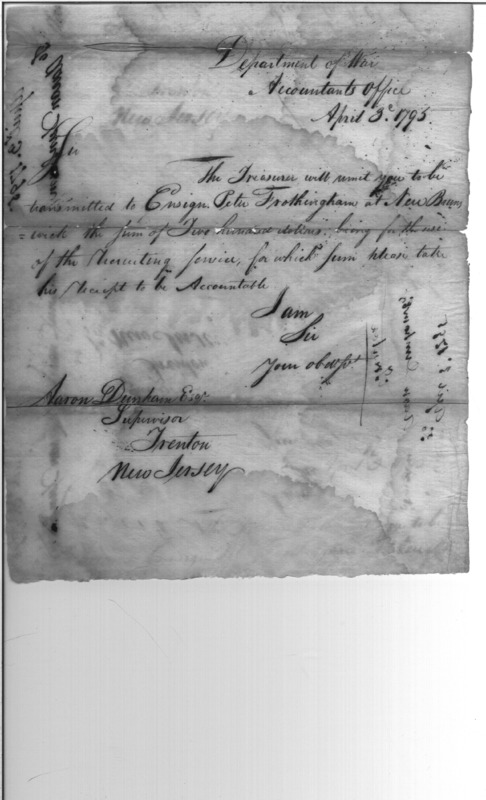 Department of War
Accountants Office
April 3d. 1795
Sir
The Treasurer will remit you to be
transmitted to Ensign Peter Frothingham at New Bruns
=wick the sum of Two hundred dollars, being for the use
of the recruiting service, for which sum please take
his receipt to be Accountable
I am
Sir
Your obedt. st.
Aaron Dunham Esqr.
Supervisor
Trenton
New Jersey
To Aaron Dunham
April 3. 1795